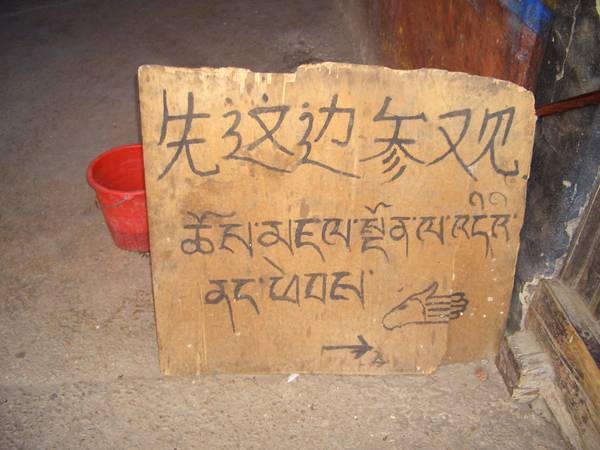 先这边参观
ཆོས་མཇལ་སྔོན་ལ་འདིའི་
ནང་ཕེབས་